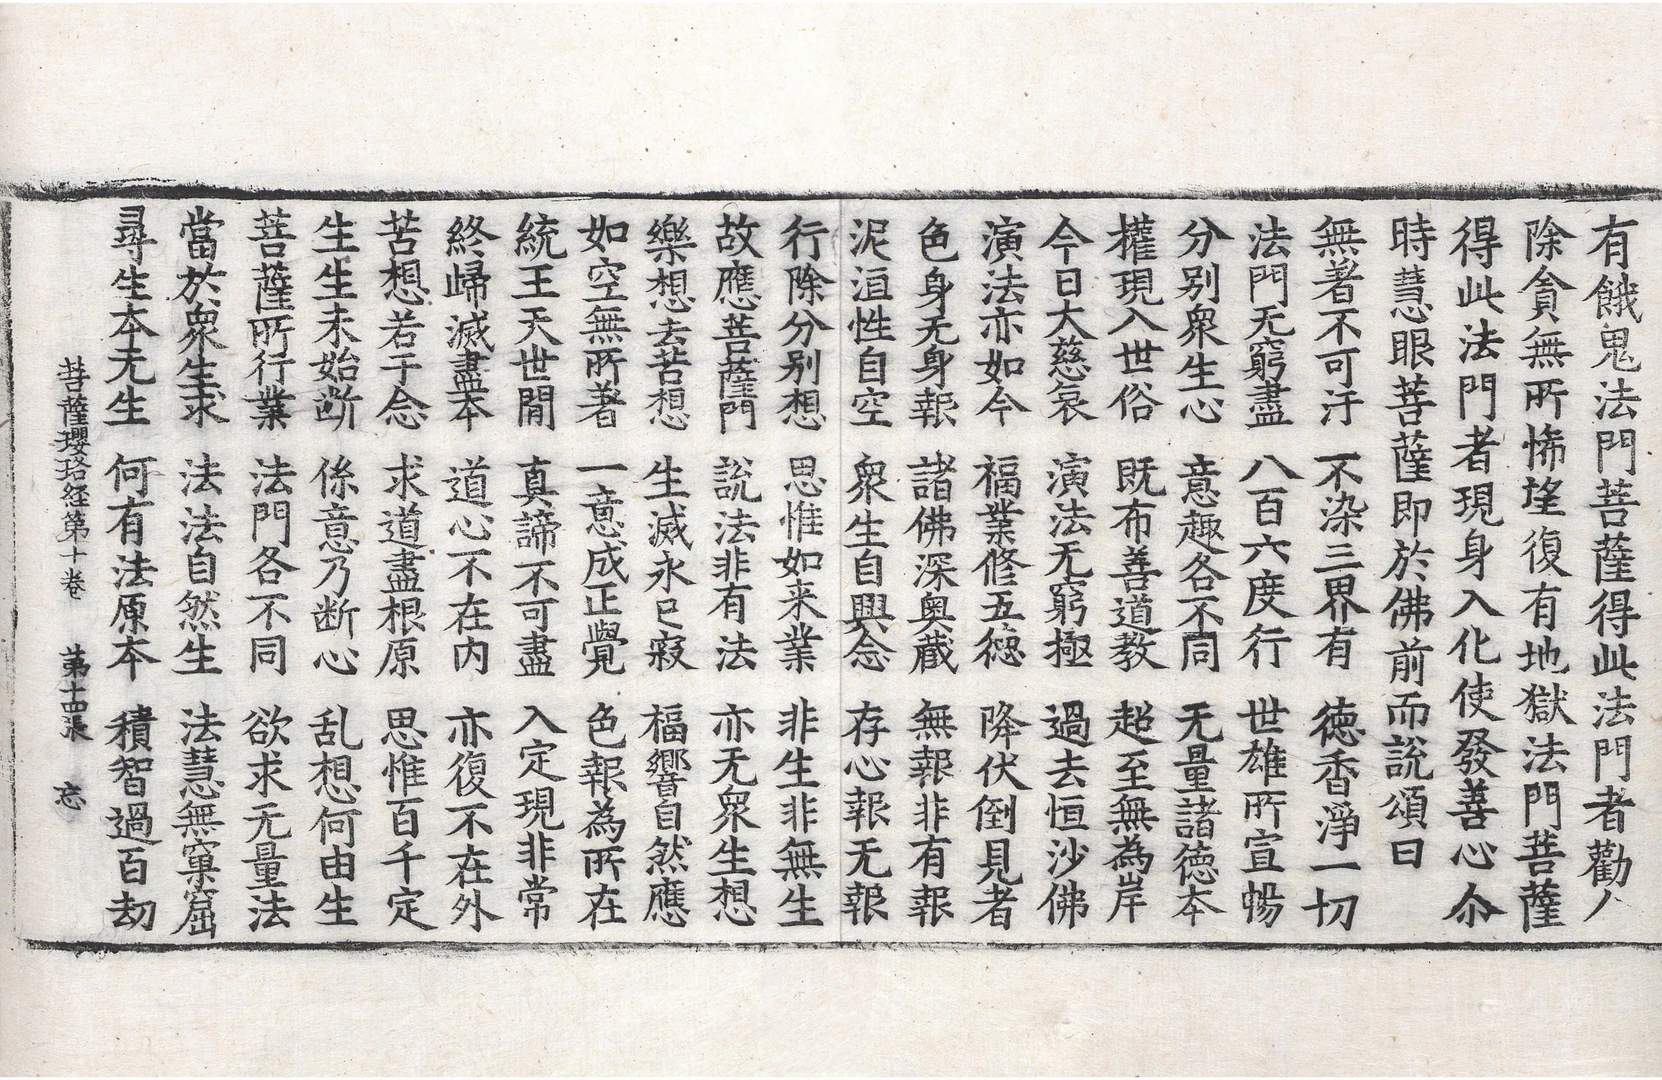 有餓鬼法門菩薩得此法門者勸人
除貪無所悕望復有地獄法門菩薩
得此法門者現身入化使發善心尒
時慧眼菩薩即於佛前而說頌曰
無著不可汙　不染三界有　德香淨一切
法門无窮盡　八百六度行　世雄所宣暢
分别衆生心　意趣各不同　无量諸德本
權現入世俗　既布善道教　超至無為岸
今日大慈哀　演法无窮極　過去恒沙佛
演法亦如今　福業修五德　降伏倒見者
色身无身報　諸佛深奥藏　無報非有報
泥洹性自空　衆生自興念　存心報无報
行除分别想　思惟如来業　非生非無生
故應菩薩門　說法非有法　亦无衆生想
樂想去苦想　生滅永已寂　福響自然應
如空無所著　一意成正覺　色報為所在
統王天世間　真諦不可盡　入定現非常
終歸滅盡本　道心不在内　亦復不在外
苦想若干念　求道盡根原　思惟百千定
生生未始断　係意乃断心　乱想何由生
菩薩所行業　法門各不同　欲求无量法
當於衆生求　法法自然生　法慧無窠窟
尋生本无生　何有法原本　積智過百劫
菩薩瓔珞經第十卷　第十四張　忘